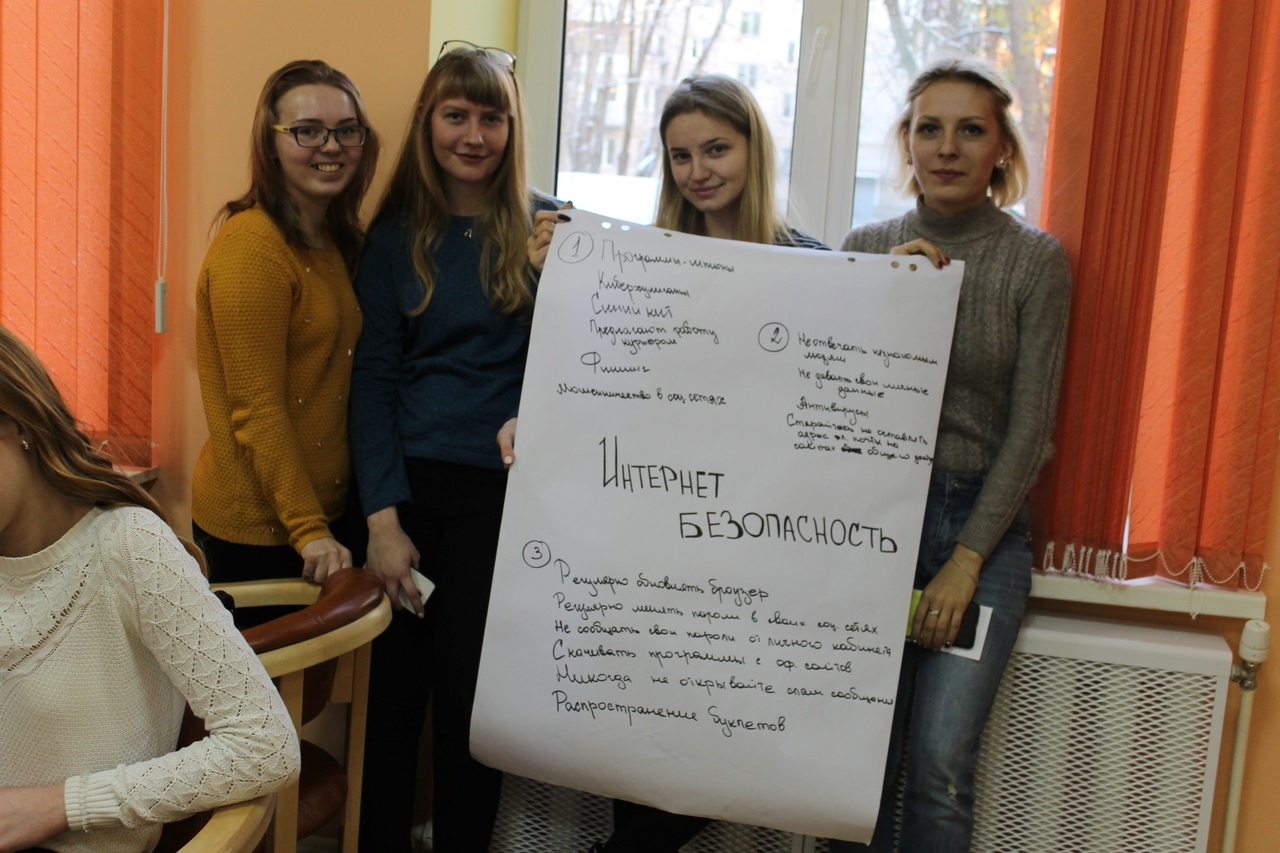 1
Программы-шпионы
Киберхулиганы
Синий кит
Предлагают работу
курьером
Фишинг
Мошенничество в соц сетях
2
Не отвечать незнакомым
людям
Не давать свои личные
данные
Антивирусы
Старайтесь не оставлять
адрес эл. почты на
сайтах общего
ИНТЕРНЕТ
БЕЗОПАСНОСТЬ
3
Регулярно обновлять браузер
Регулярно менять пароли в своих соц сетях
Не сообщать свои пароли от личного кабинета
Скачивать программы с оф. сайтов
Никогда не открывайте спам сообщения
Распространение буклетов